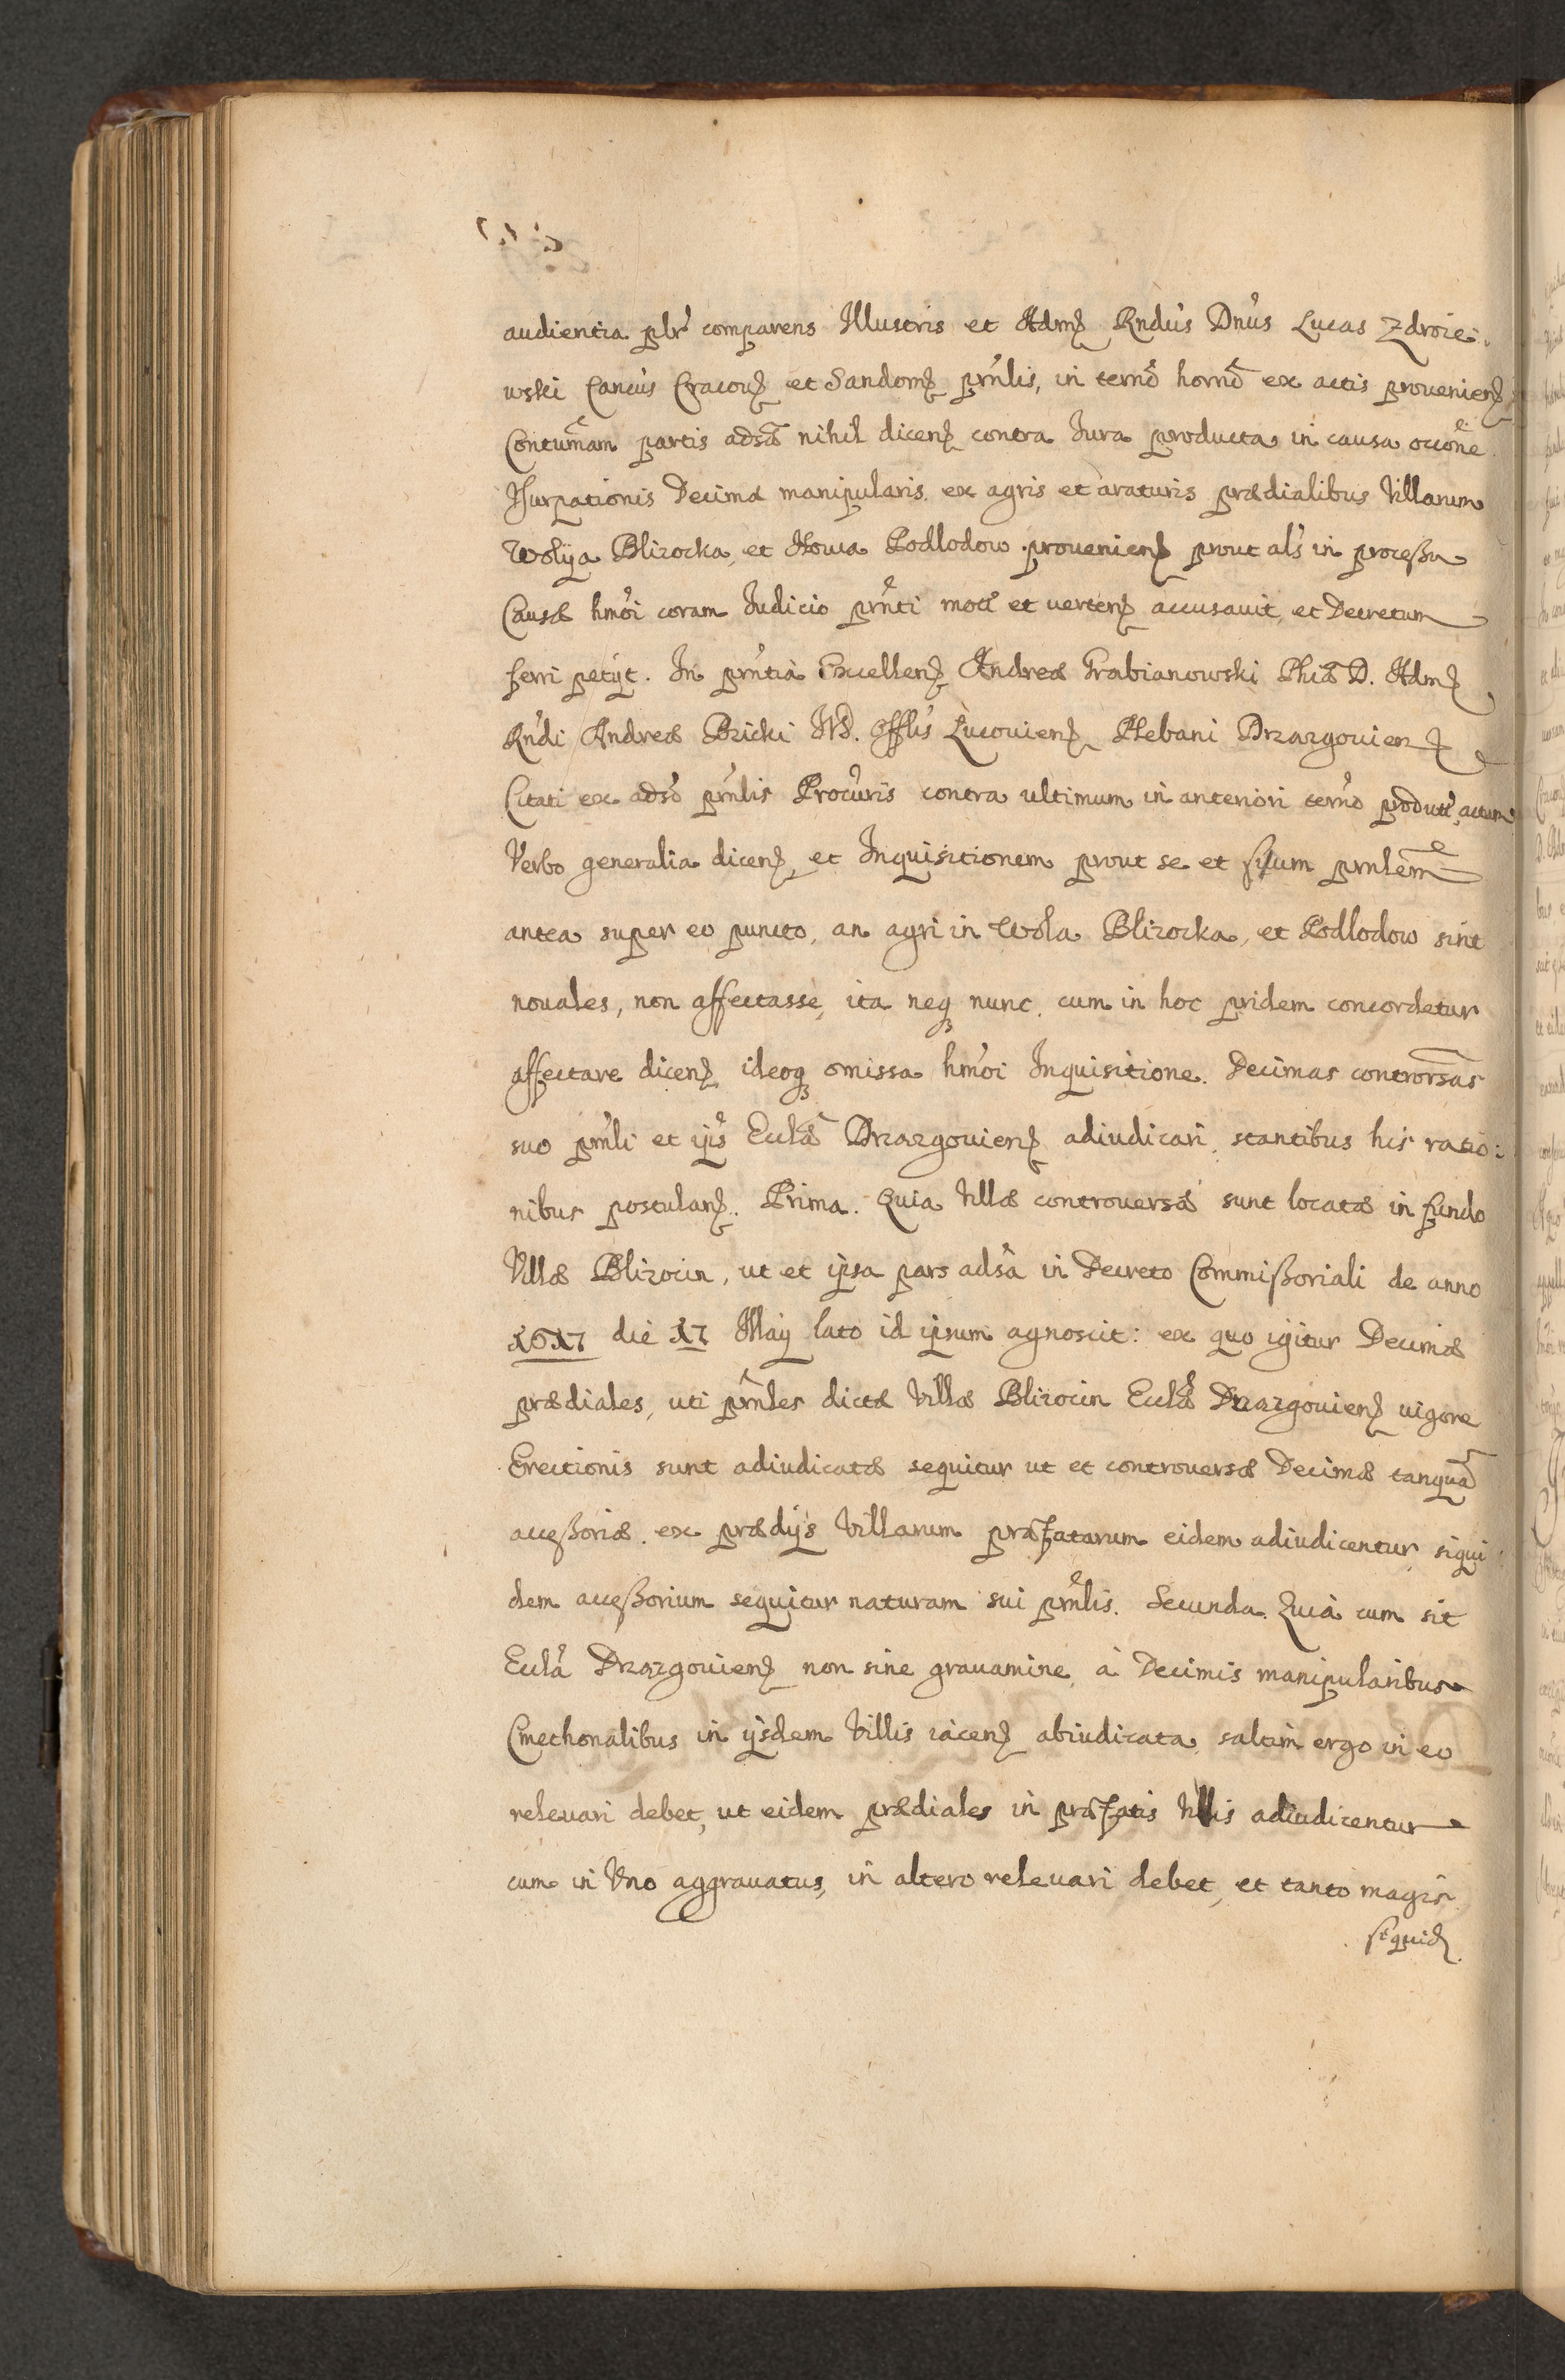 audientia plr comparens Illustris et Adm Rndus Dnus Lucas Zdroie:
wski Cancus Cracou et Sandom prnlis, in termo horno ex actis prouenien
Contumam partis adsa nihil dicen contra Iura producta in causa occone
Vsurpationis Decimæ manipularis ex agris et araturis prædialibus Villarum
Wolya Blizocka, et Nowa Podlodow prouenien prout als in processu
Causæ hmoi coram Iudicio prnti motæ et uerten accusauit, et Decretum
ferri petijt. In prntia Excellen Andreæ Grabianowski Phiæ D. Adm
Rndi Andreæ Bzicki IVD. Offlis Lucouien Plebani Drzazgouien
Citati ex adso prnlis Procuris contra ultimum in anteriori termo productu actum
Verbo generalia dicen, et Inquisitionem prout se et suum prnlem
antea super eo puncto, an agri in Wola Blizocka, et Podlodow sint
nouales, non affectasse, ita neq nunc, cum in hoc pridem concordetur
affectare dicen, ideoq omissa hmoi Inquisitione. Decimas controrsas
suo prnli et ipis Eccla Drzazgouien adiudicari, stantibus his ratio:
nibus postulan. Prima. Quia Villæ controuersæ sunt locatæ in fundo
Villæ Blizocin, ut et ipsa pars adsa in Decreto Commissoriali de anno
1617 die 17 May lato id ipsum agnoscit: ex quo igitur Decimæ
prædiales, uti prnles dictæ Villæ Blizocin Ecclæ Drzazgouien uigore
Erectionis sunt adiudicatæ sequitur ut et controuersæ Decimæ tanqua
accessoriæ ex prædijs Villarum præfatarum eidem adiudicentur siqui:
dem accessorium sequitur naturam sui prnlis. Secunda. Quia cum sit
Eccla Drzazgouien non sine grauamine à Decimis manipularibus
Cmethonalibus in ijsdem Villis iacen abiudicata, saltim ergo in eo
releuari debet, ut eidem prædiales in præfatis Villis adiudicentur
cum in Vno aggrauatus, in altero releuari debet, et tanto magis
siquid